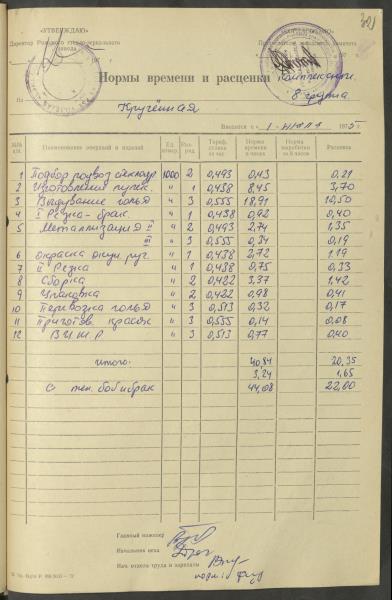 321
«УТВЕРЖДАЮ»
Директор
завода
Нормы времени и расценки Комплексной
8 группа
На Кручённая
Вводятся с „ 1 - мая 1975 г.
№№ п/п Наименование операций и изделий Ед. измер. Раз-ряд Тариф. ставка за час Норма времени в часах Норма выработки за 8 часов Расценка
1 Подбор подвоз 1000 2 0,493 0,43 0,21
2 Изготовление пучек. " 1 0,438 8,45 3,70
3 Выдувание голья " 3 0,555 18,91 10,50
4 I Резка - брак. " 1 0,438 0,92 0,40
5 Металлизация II " 2 0,493 2,74 1,35
III " 3 0,555 0,34 0,19
6 окраска окун. руч. " 1 0,438 2,72 1.19
7 II Резка " 1 0,438 0,75 0,33
8 Сборка " 2 0,422 3,37 1,42
9 Упаковка " 2 0,422 0,98 0,41
10 Перевозка голья " 3 0,513 0,32 0,17
11 Приготов. красок " 3 0,555 0,14 0,08
12 " 3 0,513 0,77 0,40
итого: 40,84 20,35
3,24 1,65
С тех. бой и брак 44,08 22,00
Главный инженер
Начальник цеха
Нач. отдела труда и зарплаты